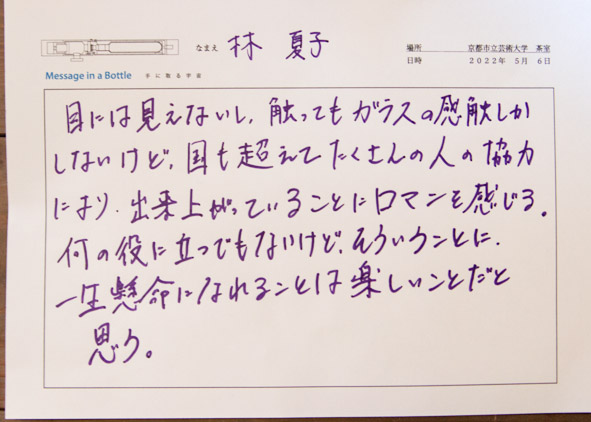 なまえ 林 夏子
場所 京都市立芸術大学 茶室
日時 2022年 5月 6日
Message in a Bottle 手に取る宇宙
目には見えないし、触ってもガラスの感触しか
しないけど、国も超えてたくさんの人の協力
により、出来上がっていることにロマンを感じる。
何の役に立つでもないけど、そういうことに、
一生懸命になれることは楽しいことだと
思う。